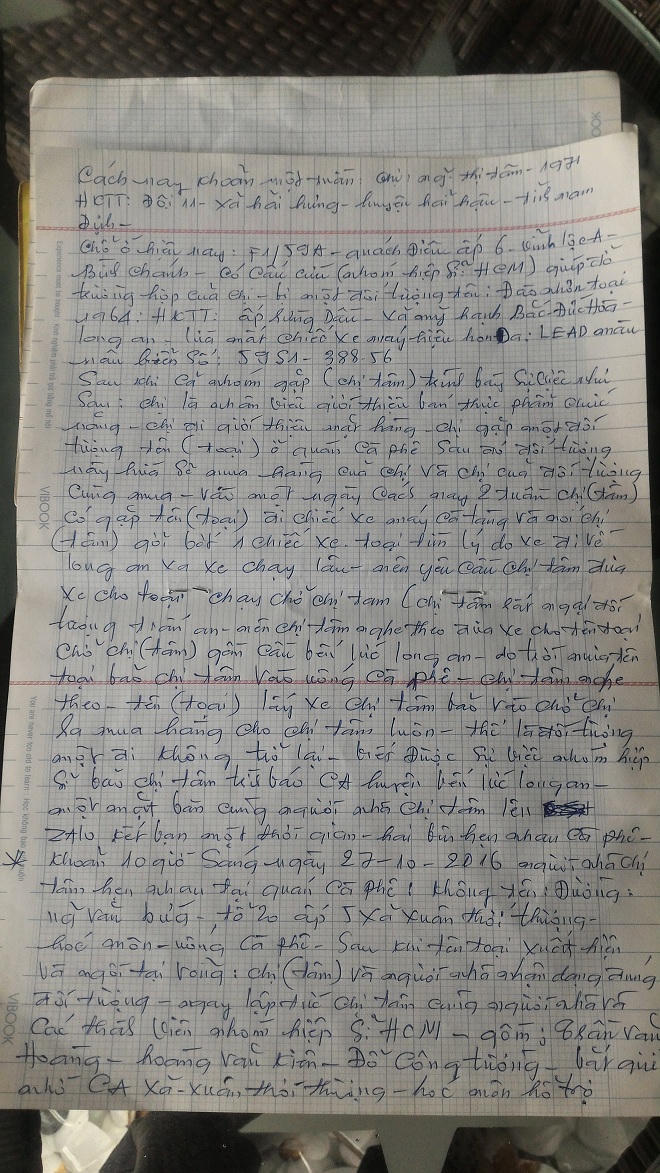 Cách nay khoản một tuần: chị: ngŨ. thị tâm - 1971
HKTT: Đội 11 - xã hải hưng - huyện hải hậu - tỉnh nam
Định -
Chổ ở hiện nay: F1/59A - quách Điêu ấp 6 - Vĩnh lộc A -
Bình chánh - Có cầu cứu (nhóm hiệp Sĩ HCM) giúp đở
trường hợp của chị - bị một đối tượng tên: Đào nhơn toại
1964: HKTT: ấp hưng Dân - xã mỹ hạnh Bắc Đức Hòa -
long an - lừa mất chiếc xe máy hiệu honDa: LEAD màu
nâu biển Số: 59S1 - 388-56
Sau khi cả nhóm gặp (chị tâm) trình bày Sự việc như
Sau: chị là nhân viên giới thiệu bán thực phẩm chức
năng - chị đi giới thiệu mặt hàng - chị gặp một đối
tượng tên (toại) ở quán Cà phê Sau đó đối tượng
này hứa Sẽ mua hàng của chị và chị của đối tượng
cũng mua - vào một ngày Cách nay 2 tuần chị (tâm)
có gặp tên (toại) đi chiếc xe máy cà tàng và nói chị
(tâm) gởi bớt 1 chiếc xe. toại tìm lý do xe đi về
long an xa xe chạy lâu - nên yêu cầu chị tâm đưa
xe cho toại chạy chở chị tâm (chị tâm rất ngại đối
tượng trấn an - nên chị tâm nghe theo đưa xe cho tên toại
chở chị (tâm) gần cầu bến lức long an - do trời mưa tên
toại bảo chị tâm vào uống Cà phê - chị tâm nghe
theo - tên (toại) lấy xe chị tâm bảo vào chở chị
ra mua hàng cho chị tâm luôn - thế là đối tượng
một đi không trở lại - biết Được Sự việc nhóm hiệp
Sĩ bảo chị tâm trình báo CA huyện bến lức long an -
một mặt bàn cùng người nhà chị tâm lên
ZAlo kết bạn một thời gian - hai bên hẹn nhau Cà phê -
* khoản 10 giờ Sáng ngày 27-10-2016 người nhà chị
tâm hẹn nhau tại quán Cà phê: không tên: Đường:
ng văn bứa - tổ 20 ấp 5 xã xuân thới thượng -
hóc môn - uống Cà phê - Sau khi tên toại xuất hiện
và ngồi tại vong: chị (tâm) và người nhà nhận dạng đúng
đối tượng - ngay lập tức chị tâm cùng người nhà và
Các thành Viên nhóm hiệp Sĩ HCM - gồm: trần văn
Hoàng - hoàng văn kiên - Đổ Công tường - bắt giữ
nhờ CA xã - xuân thới thượng - hóc môn hổ trợ
VIBOOK
VIBOOK
VIBOOK
You are never too old to learn